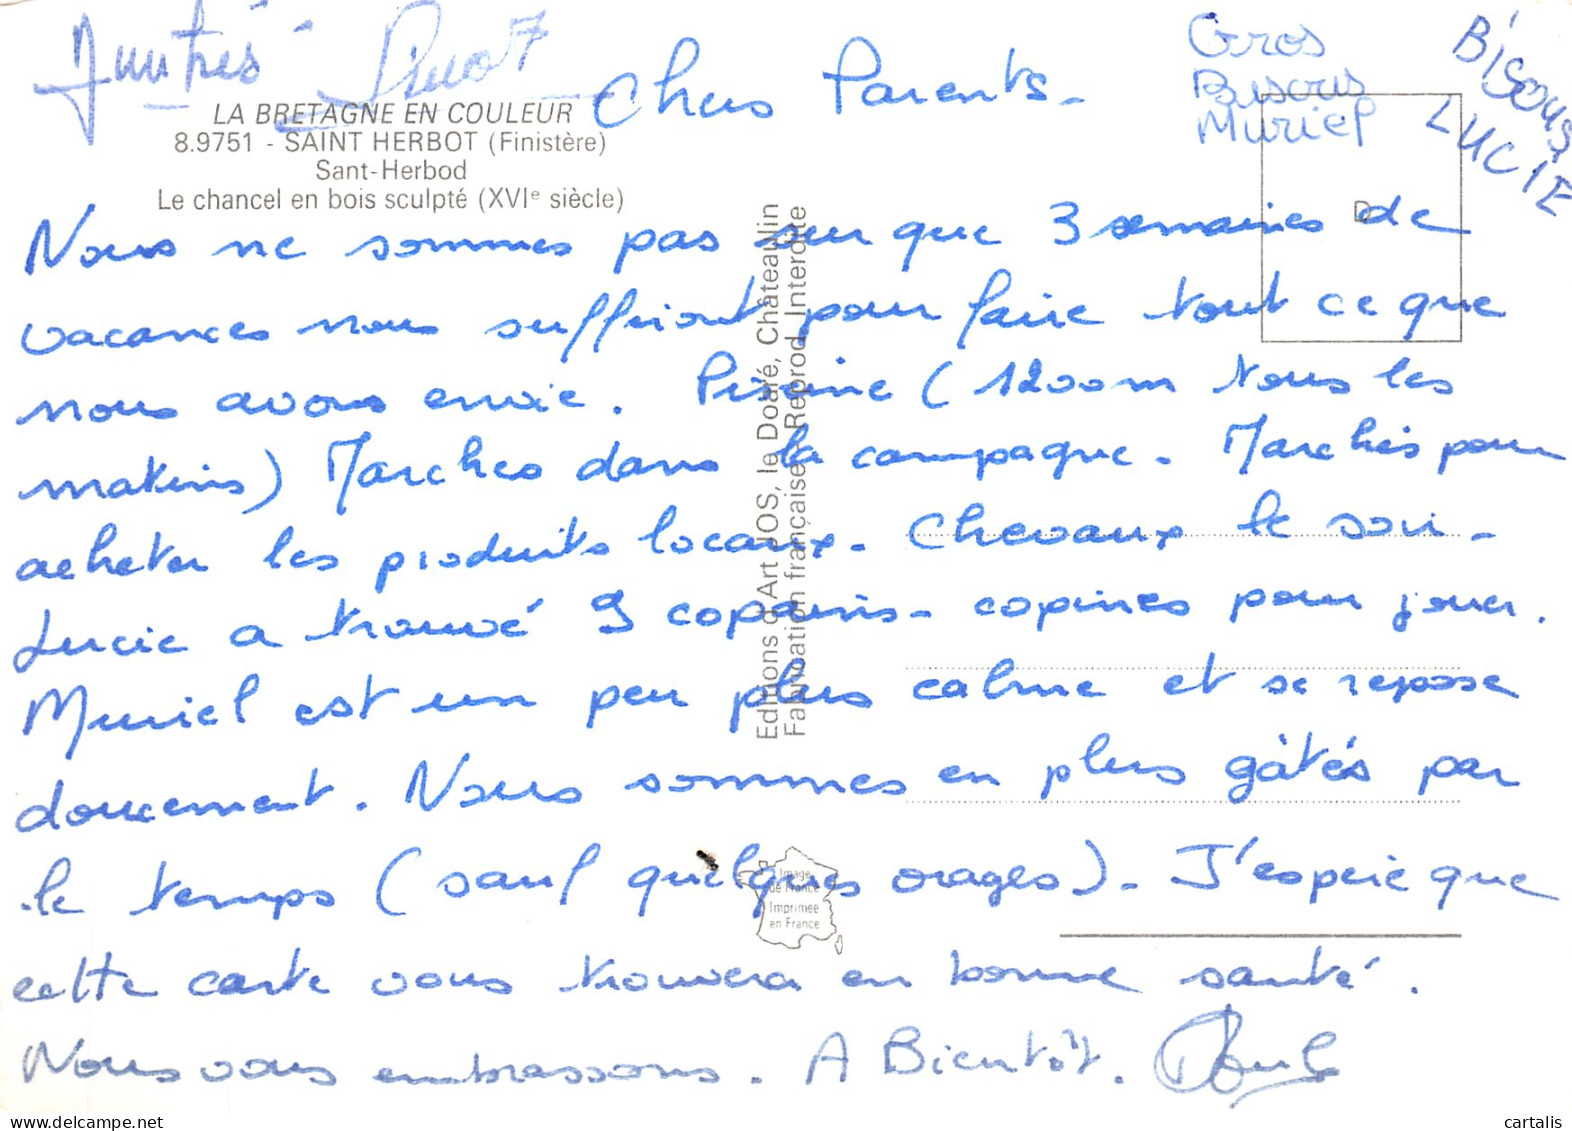 Gros
Bisous
Muriel
BISOUS
LUCIE
Chers Parents -
LA BRETAGNE EN COULEUR
8.9751 - SAINT HERBOT (Finistère)
Sant-Herbod
Le chancel en bois sculpté (XVIe siècle)
Nous ne sommes pas sur que 3 semaines de
vacances nous suffiront pour faire tout ce que
nous avons envie. Piscine (1200m tous les
matins) Marches dans la campagne - Marchés pour
acheter les produits locaux - Chevaux le soir -
Lucie a trouvé 9 copains - copines pour jouer.
Muriel est un peu plus calme et se repose
doucement. Nous sommes en plus gâtés par
le temps (sauf quelques orages) - J'espère que
cette carte vous trouvera en bonne santé.
Nous vous embrassons. A Bientôt.
Editions d'Art JOS, le Doaré, Châteaulin
Fabrication française Reprod. Interdite
D
Image
de France
Imprimée
en France
cartalis